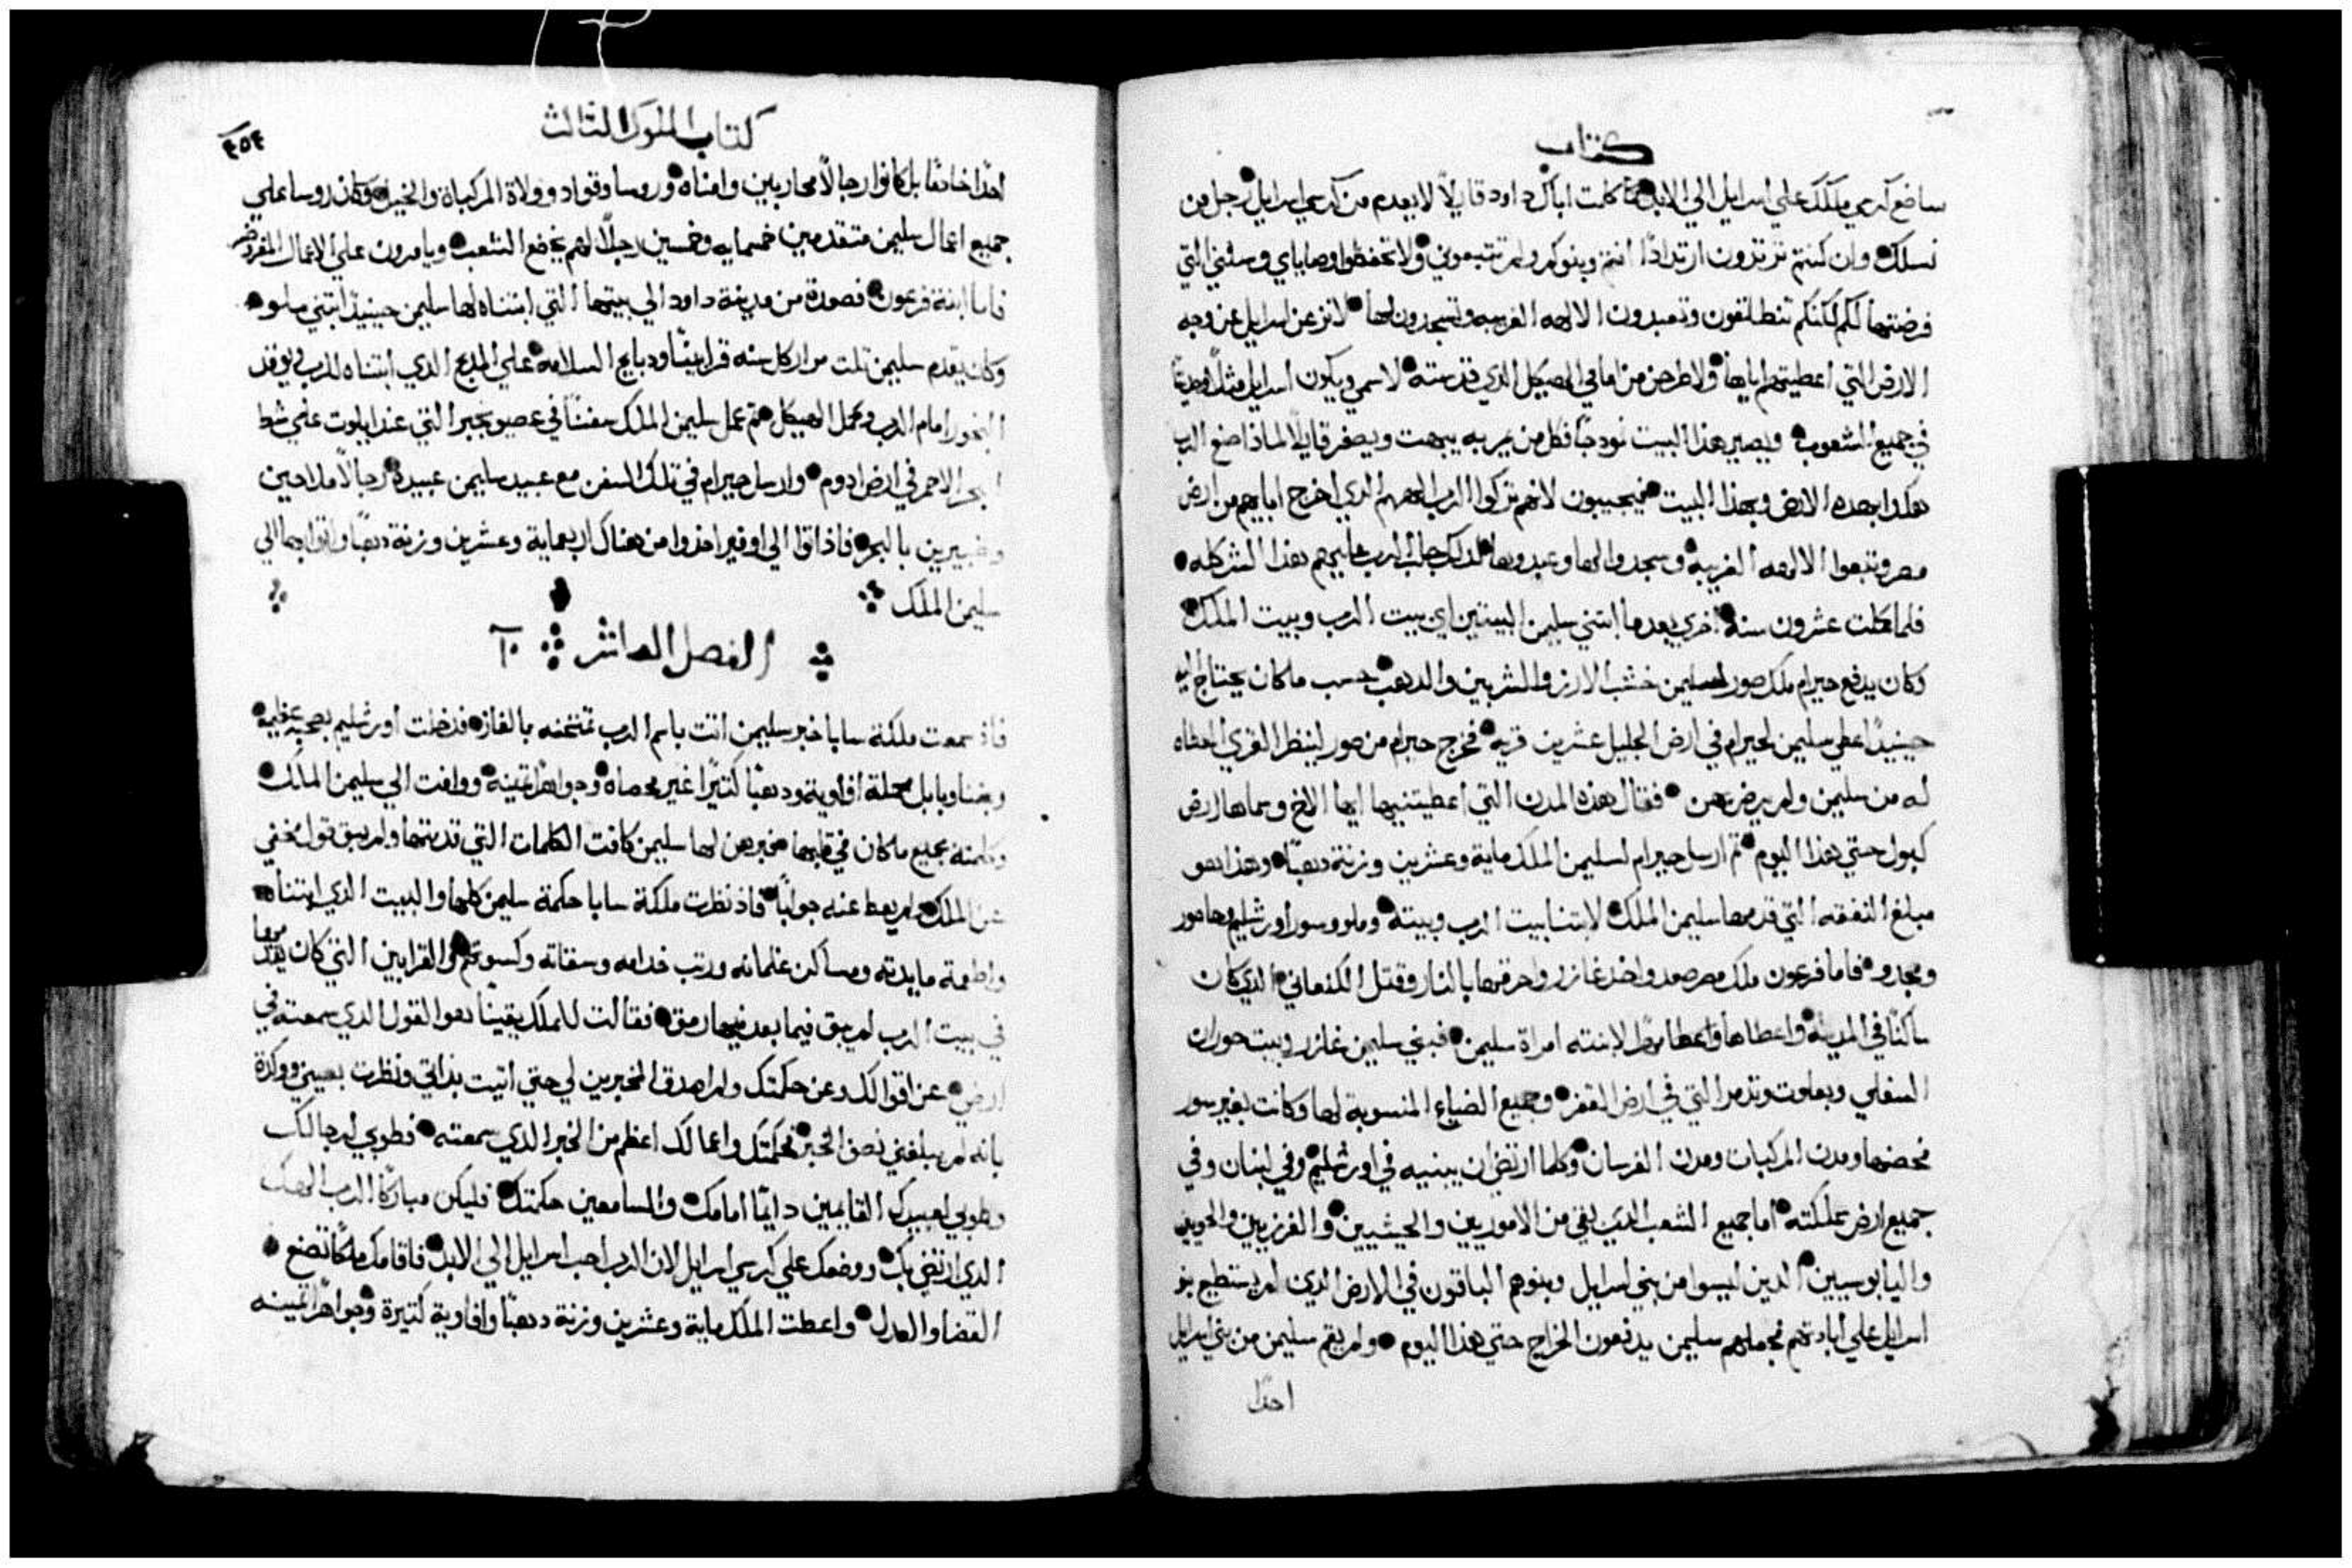 كتاب
ساضع كرسي ملكك علي اسرايل الي الابد كما كلمت اباك داود قايلاً لا يعدم من كرسي اسرايل رجل من
نسلك وان كنتم ترتدون ارتدادًا انتم وبنوكم ولم تتبعوني ولا تحفظوا وصاياي وسنني التي
فرضتها لكم لكنكم تنطلقون وتعبدون الالهه الغريبه وتسجدون لها لانزعن اسرايل عن وجه
الارض التي اعطيتهم اياها ولاطرحن من امامي الهيكل الذي قدسته لاسمي ويكون اسرايل مثلاً وحديثًا
في جميع الشعوب ويصير هذا البيت نمودجًا فكل من يمر به يبهت ويصفر قايلاً لماذا صنع الرب
هكدا بهده الارض وبهذا البيت فيجيبون لانهم تركوا الرب الههم الدي اخرج اباهم من ارض
مصر وتبعوا الالهه الغريبة وسجدوا لها وعبدوها لدلك جلب الرب عليهم هذا الشر كله
فلما كملت عشرون سنة اخري بعدما ابتني سليمن البيتين اي بيت الرب وبيت الملك
وكان يدفع حيرام ملك صور لسليمن خشب الارز والشربين والدهب حسب ما كان يحتاج اليه
حينيدًا اعطي سليمن لحيرام في ارض الجليل عشرين قرية فخرج حيرام من صور لينظر القري اعطاه
له من سليمن ولم يرض بهن فقال هذه المدن التي اعطيتنيها ايها الاخ وسماها ارض
كبول حتي هذا اليوم ثم ارسل حيرام لسليمن الملك ماية وعشرين وزنة دهبًا وهذا هو
مبلغ النفقه التي قدمها سليمن الملك لابتنا بيت الرب وبيته وملو وسور اورشليم وحاصور
ومجدو فاما فرعون ملك مصر صعد واخذ غازر واحرقها بالنار وقتل الكنعاني الدي كان
ساكنًا في المدينة واعطاها مهرًا لابنته امراة سليمن فبني سليمن غازر وبيت حوران
السفلي وبعلوت وتدمر التي في ارض القفر وجميع الضياع المنسوبة لها وكانت بغير سور
فحصنها ومدن المركبات ومدن الفرسان وكلما ارتضي ان يبنيه في اورشليم وفي لبنان وفي
جميع ارض مملكته اما جميع الشعب الدي بقي من الاموريين والحيثيين والفرزيين والحويين
واليابوسيين الدين ليسوا من بني اسرايل وبنوهم الباقون في الارض الدين لم يستطيع بنو
اسرايل علي ابادتهم فجعلهم سليمن يدفعون الخراج حتي هذا اليوم ولم يقم سليمن من بني اسرايل
احدًا
كتاب الملوك الثالث
٤٥٤
احدًا خادمًا بل كانوا رجالاً محاربين وامناه وروسا وقواد وولاة المركبات والخيل وكان روسا علي
جميع اعمال سليمن متقدمين خمسمايه وخمسين رجلاً لهم يخضع الشعب ويامرون علي الاعمال المفروض
فاما ابنة فرعون فصعدة من مدينة داود الي بيتها التي ابتناه لها سليمن حينيدًا ابتني ملو
وكان يقدم سليمن ثلت مرار كل سنه قرابينًا ودبايح السلامه علي المدبح الدي ابتناه للرب ويوقد
البخور امام الرب وكمل الهيكل ثم عمل سليمن الملك سفنًا في عصيونجبر التي عند ايلوت علي شط
بحر الاحمر في ارض ادوم وارسل حيرام في تلك السفن مع عبيد سليمن عبيده رجالاً ملاحين
وخبيرين بالبحر فاذ اتوا الي اوفير اخذوا من هناك اربعماية وعشرين وزنة دهبًا واتوا بها الي
سليمن الملك
الفصل العاشر ١٠
فاذ سمعت ملكة سابا خبر سليمن اتت باسم الرب تمتحنه بالغاز فدخلت اورشليم بصحبة عظيمة
وبغنا وبابل محملة افاوية ودهبًا كثيرًا غير محصاه وجواهرًا ثمينه ووافت الي سليمن الملك
وكلمته بجميع ما كان في قلبها فخبرهن لها سليمن كافت الكلمات التي قدمتها ولم يبق قول مخفي
عن الملك لم يعط عنه جوابًا فاذ نظرت ملكة سابا حكمة سليمن كلها والبيت الذي ابتناه
واطعمة مايدته ومساكن غلمانه ورتب خدامه وسقاته وكسوتهم والقرابين التي كان يقدمها
في بيت الرب لم يبق فيما بعد فيها رمق فقالت للملك يقينًا هو القول الدي سمعته في
ارضي عن اقوالك وعن حكمتك ولم اصدق المخبرين لي حتي اتيت بداتي ونظرت بعيني ووكدة
بانه لم يبلغني نصف الخبر فحكمتك واعمالك اعظم من الخبر الدي سمعته فطوبي لرجالك
وطوبي لعبيدك القايمين دايمًا امامك والسامعين حكمتك فليكن مباركًا الرب الهك
الدي ارتضي بك ووضعك علي كرسي اسرايل لان الرب احب اسرايل الي الابد فاقامك ملكًا تصنع
القضا والعدل واعطت الملك ماية وعشرين وزنة دهبًا وافاوية كثيرة وجواهرًا ثمينه